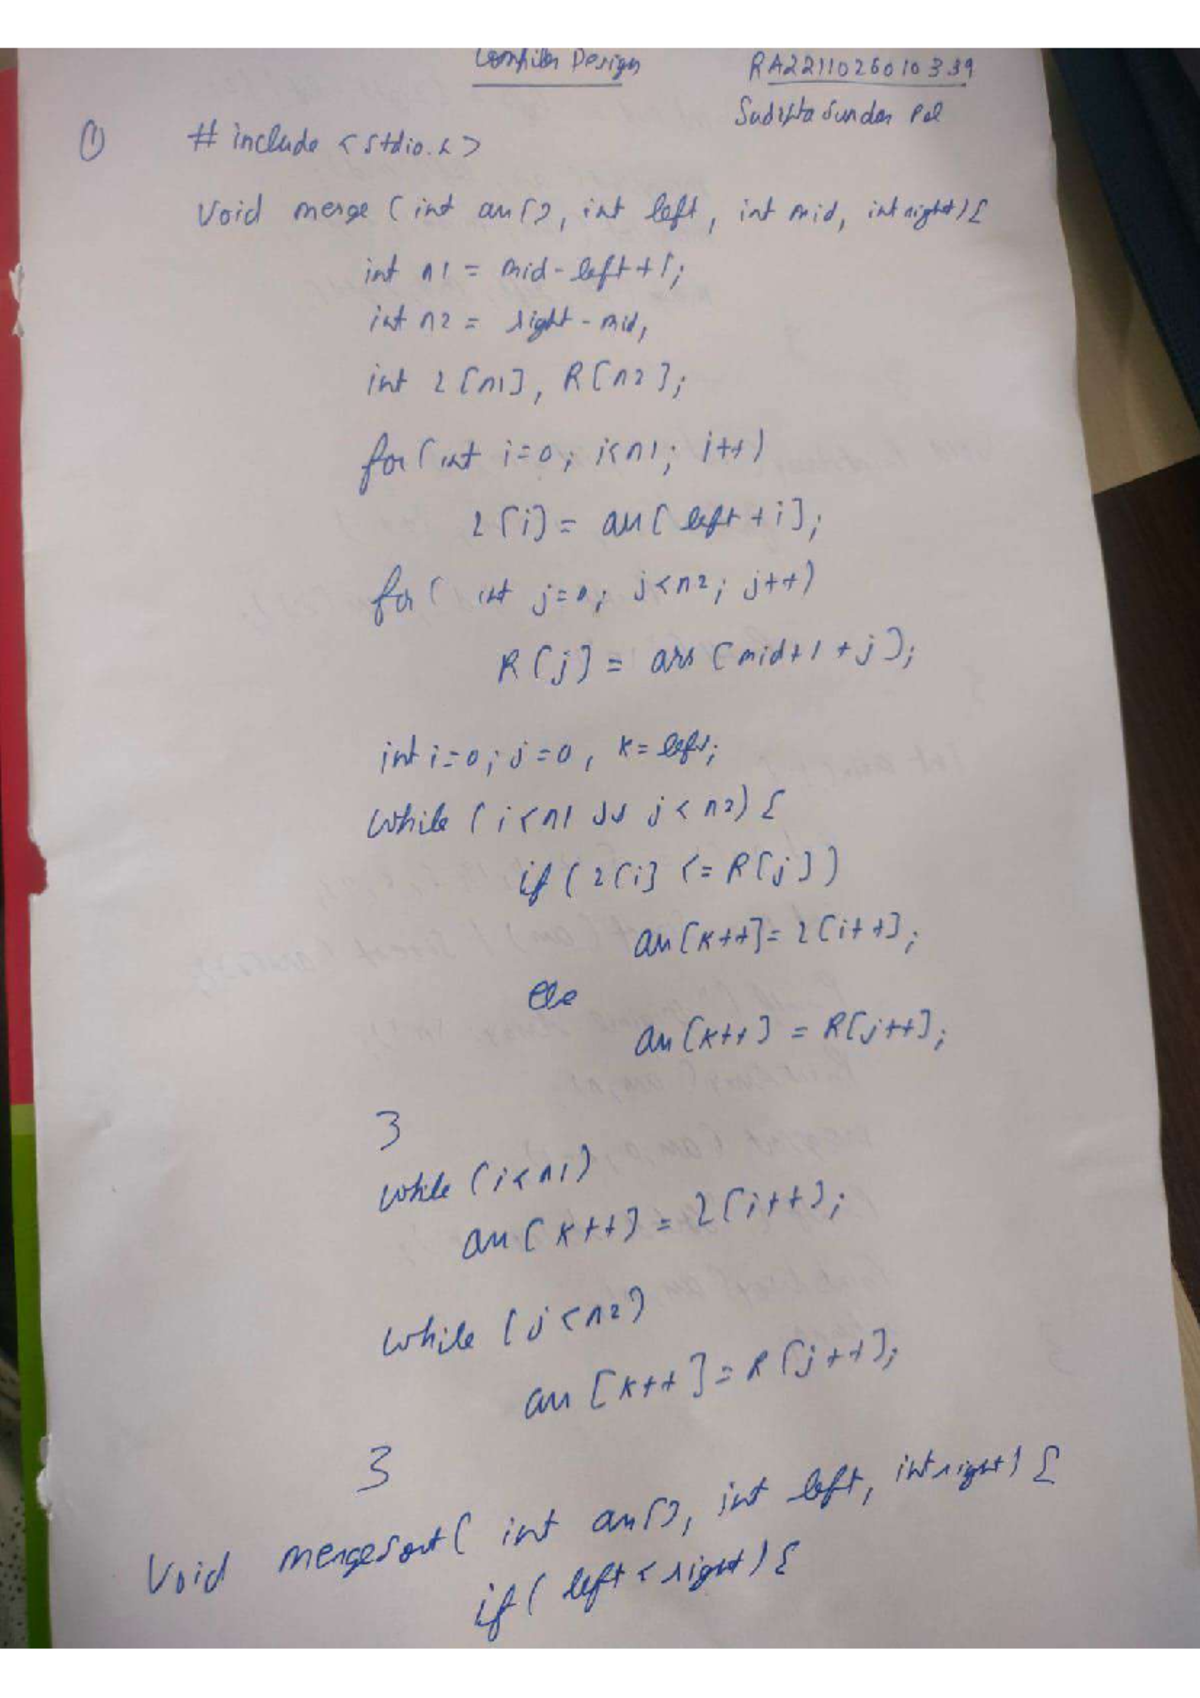 Compiler Design
RA2211026010339
Sudipta Sundar Pal
① # include <stdio.h>
Void merge (int arr[], int left, int mid, int right){
int n1 = mid-left+1;
int n2 = right-mid,
int L[n1], R[n2];
for(int i=0; i<n1; i++)
L[i] = arr[left+i];
for( int j=0; j<n2; j++)
R[j] = arr[mid+1+j];
int i=0; j=0, k=left;
while (i<n1 && j<n2) {
if (L[i] <= R[j])
arr[k++]= L[i++];
else
arr[k++] = R[j++];
}
while (i<n1)
arr[k++] = L[i++];
while (j<n2)
arr[k++] = R[j++];
}
Void mergesort( int arr[], int left, int right) {
if( left < right) {